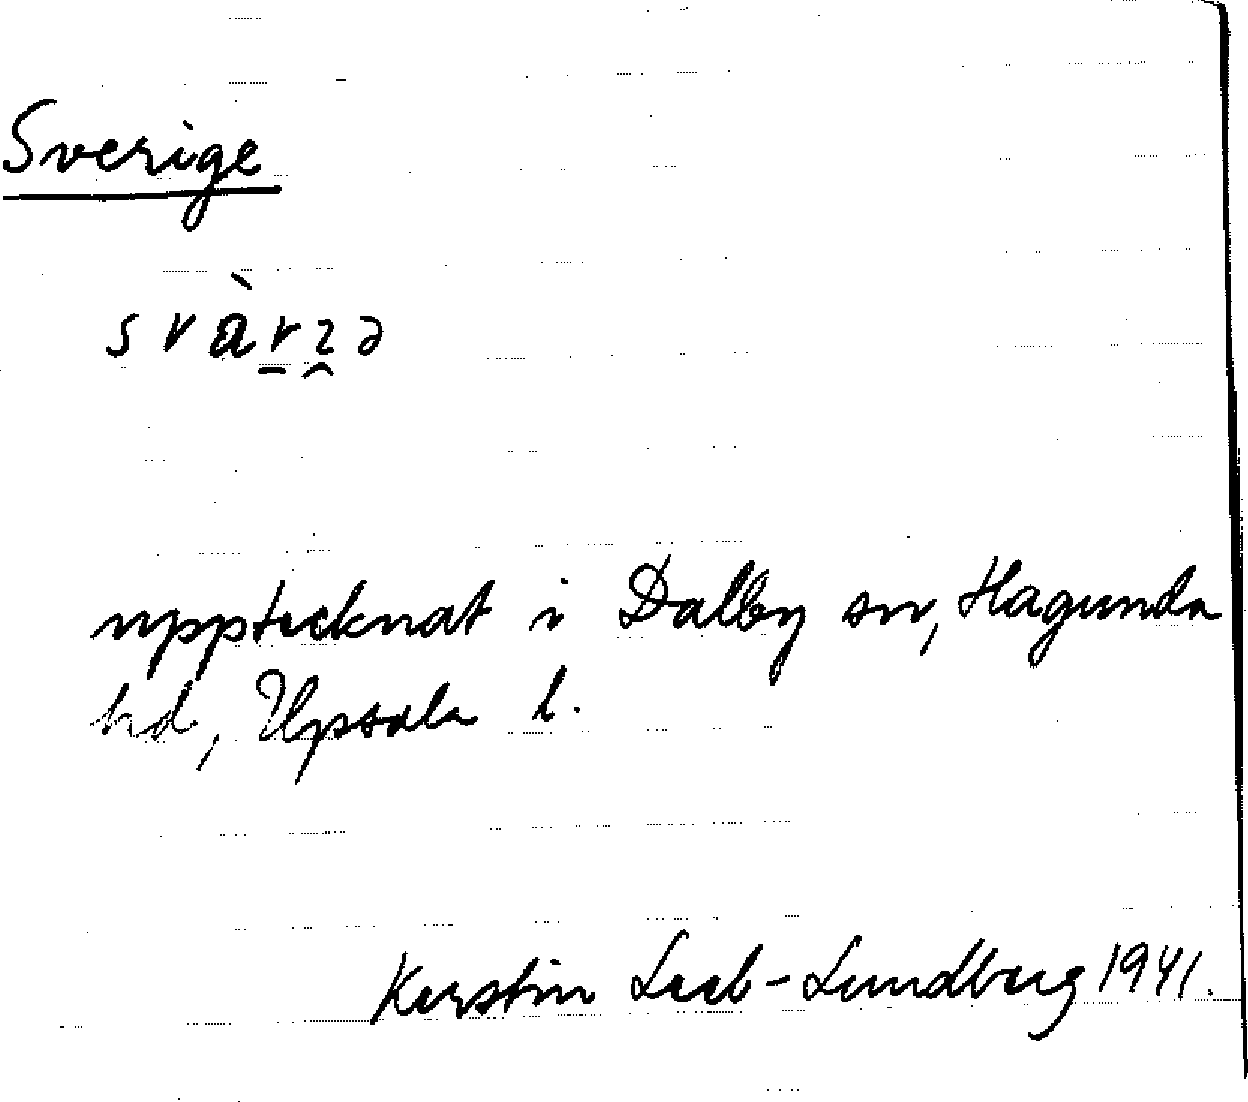 Sverige
upptecknat i Dalby sn, Hagunda
hd, Upsala l.
Kerstin Leeb-Lundberg 1941.